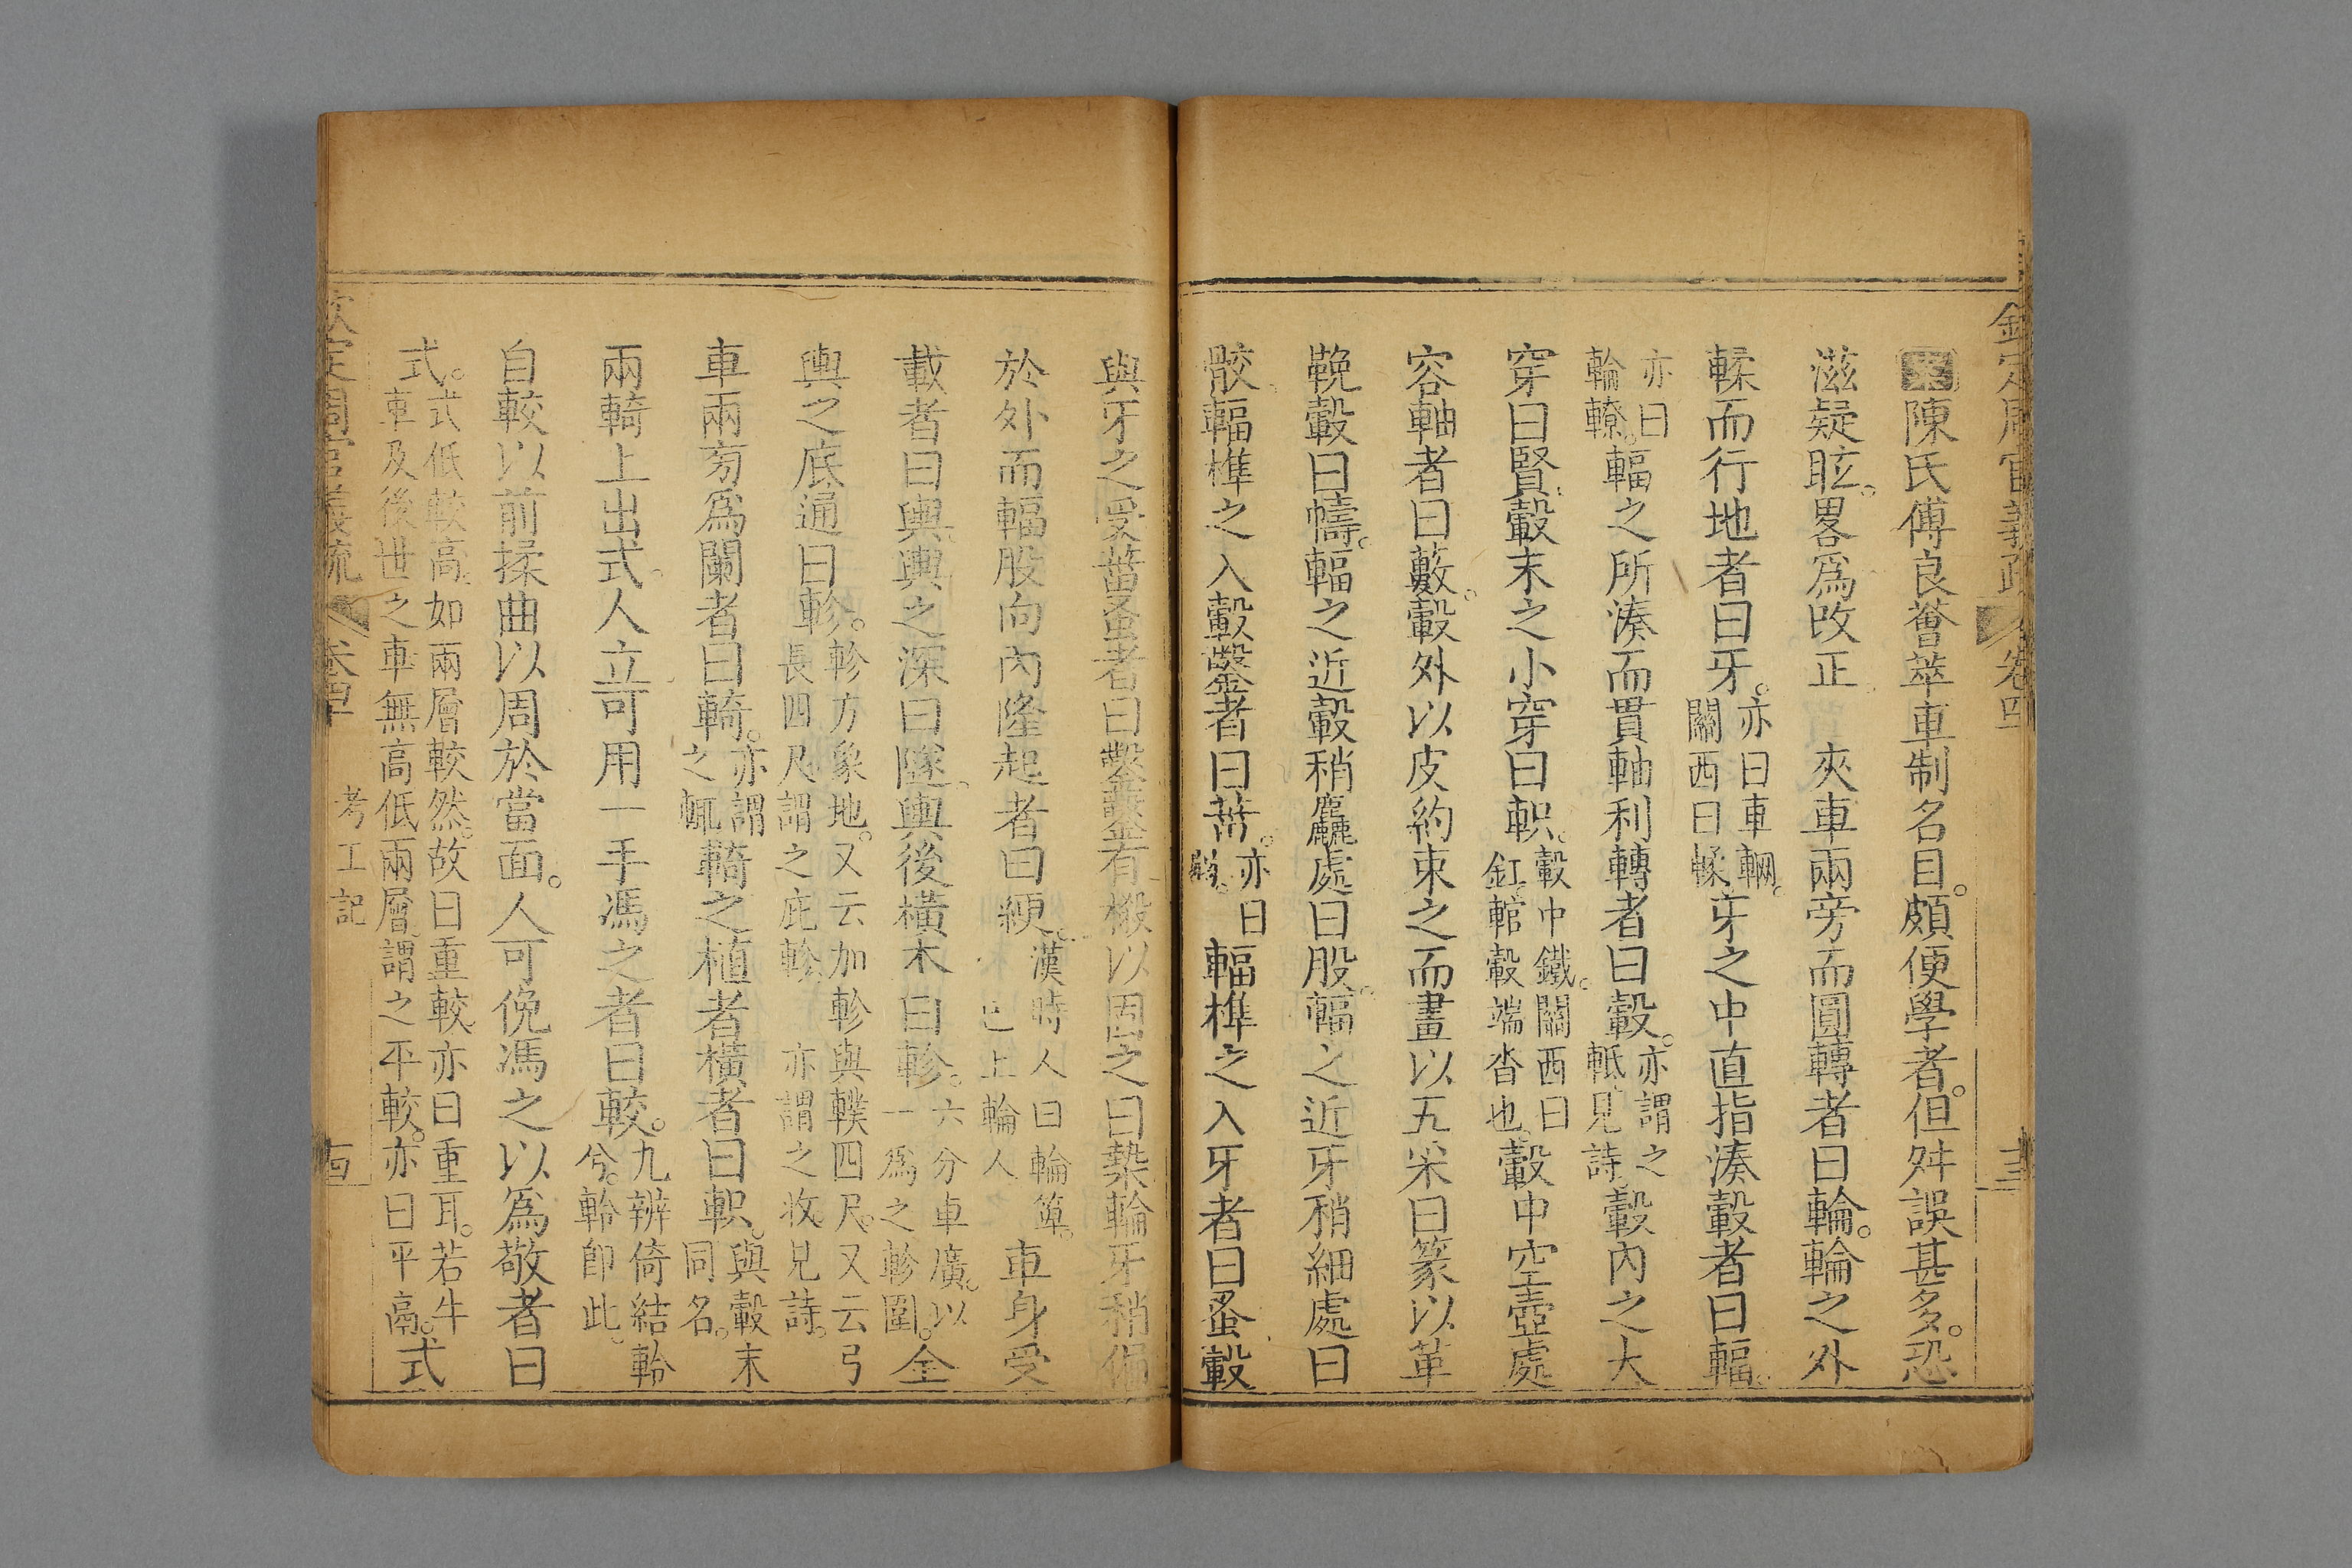 案陳氏傅良薈萃車制名目。頗便學者。但舛誤甚多。恐
滋疑眩。畧爲改正　夾車兩旁而圓轉者曰輪。輪之外
輮而行地者曰牙。亦曰車輞。關西曰輮。牙之中直指湊轂者曰輻。
亦曰輪轑。輻之所湊而貫軸利轉者曰轂。亦謂之軝見詩。轂內之大
穿曰賢。轂末之小穿曰軹。轂中鐵。關西曰釭。輨轂端沓也。轂中空壺處
容軸者曰藪。轂外以皮約束之而畫以五采曰篆以革
鞔轂曰幬。輻之近轂稍麤處曰股。輻之近牙稍細處曰
骹。輻榫之入轂鑿者曰菑。亦曰輻榫之入牙者曰蚤轂
與牙之受菑蚤者曰鑿鑿有樧以固之曰槷輪牙稍偏
於外而輻股向內隆起者曰綆。漢時人曰輪箄。已上輪人車身受
載者曰輿。輿之深曰隧。輿後橫木曰軫。六分車廣。以一爲之軫圍。全
輿之底通曰軫。軫方象地。又云加軫與轐四尺。又云弓長四尺謂之庇軫亦謂之收見詩。
車兩旁爲闌者曰輢。亦謂之輒輢之植者橫者曰軹。與轂末同名。
兩輢上出式。人立可用一手馮之者曰較。九辨倚結軨兮。軨卽此。
自較以前揉曲以周於當面。人可俛馮之以爲敬者曰
式。式低較高。如兩層較然。故曰重較亦曰重耳。若牛車及後世之車無高低兩層。謂之平較。亦曰平鬲。式
欽定周官義疏　卷四　考工記